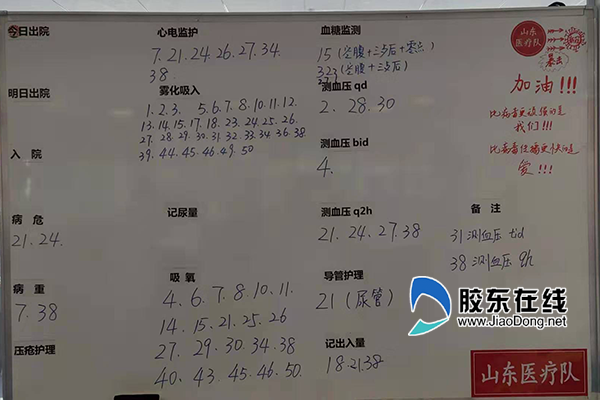 今日出院
明日出院
入院
病危
21、24.
病重
7、38
压疮护理
心电监护
7.21.24.26.27.34.
38
雾化吸入
1.2.3. 5.6.7.8.10.11.12
13.14.15.17.18.23.24.25.26.
27.28.29.30.31.32.33.34.36.38
39.44.45.46.49.50
记尿量
吸氧
4.6.7.8.10.11.
14.15.21.25.26
27. 29.30.34.38
40、43.45.46.50.
血糖监测
15(空腹+三餐后+零点)
测血压 qd
2、28.30
测血压 bid
4.
测血压 q2h
21、24、27.38
导管护理
21(尿管)
记出入量
18.21.38
山东
医疗队
加油!!!
我们!!!
爱!!!
备注
31 测血压 tid
38 测血压 qh
胶东在线
www.JiaoDong.net
山东医疗队